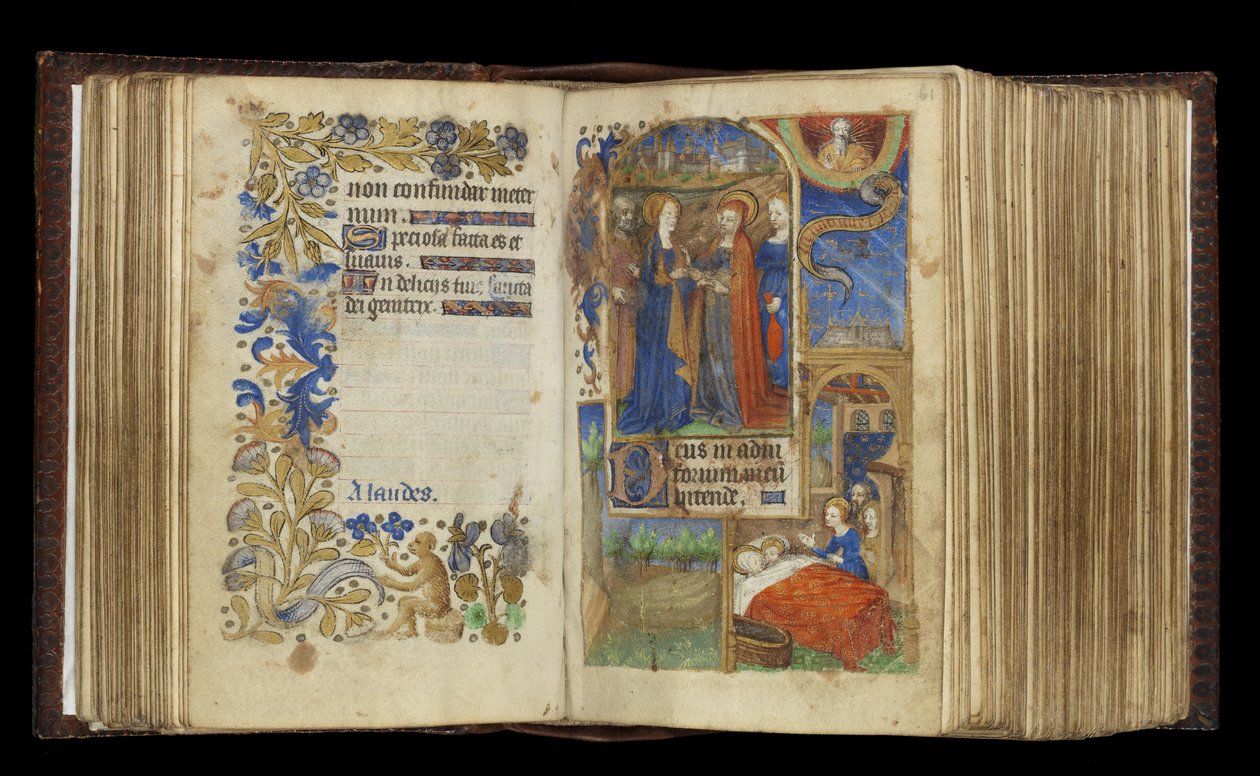 non confundar meter
num.
Speciosa facta es et
suauis.
In delicijs tuis sancta
dei genitrix.
A laudes.
61
Deus in adiu
torium meū
intende.